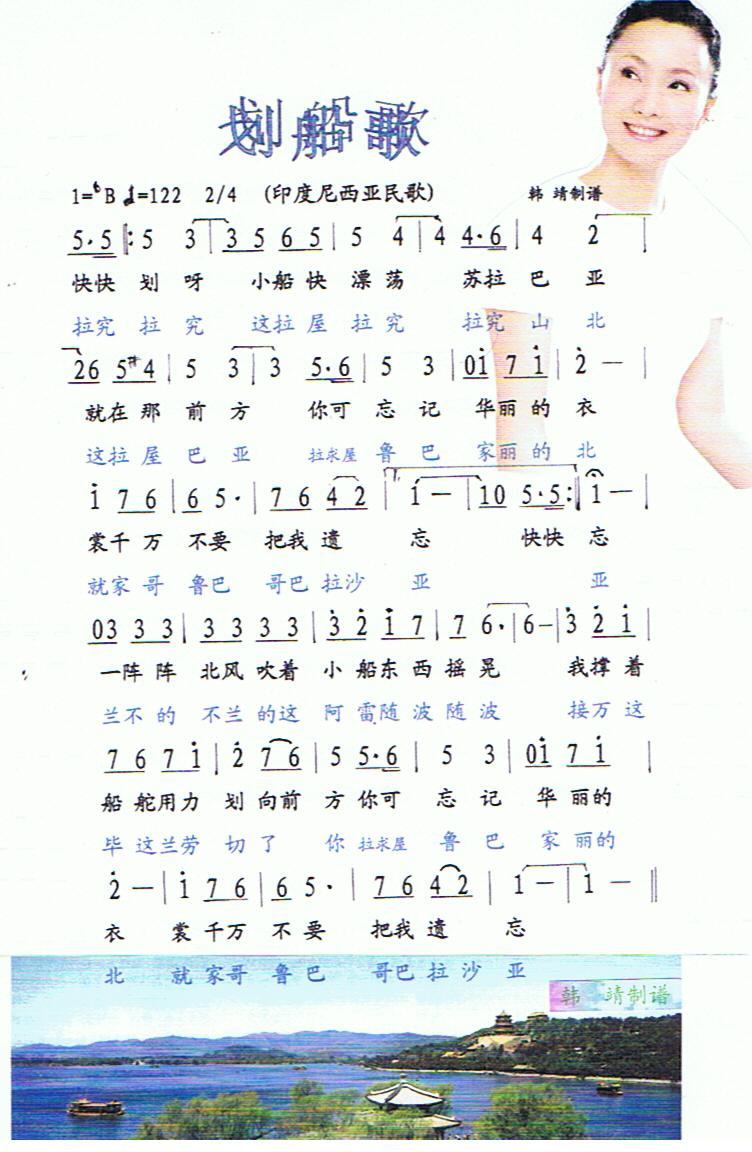 划船歌
1=ᵇB ♩=122 2/4 (印度尼西亚民歌) 韩 靖制谱
5·5 ‖: 5 3 | 3 5 6 5 | 5 4 | 4 4·6 | 4 2 |
快快 划 呀 小船 快 漂 荡 苏拉 巴 亚
拉究 拉 究 这拉 屋 拉 究 拉究 山 北
26 5#4 | 5 3 | 3 5·6 | 5 3 | 0i 7 i | 2̇ — |
就在 那 前 方 你可 忘 记 华丽 的 衣
这拉 屋 巴 亚 拉求屋 鲁 巴 家丽 的 北
i 7 6 | 6 5 · | 7 6 4 2 | 1 — | 10 5·5 :‖ 1 — |
裳千 万 不要 把我 遗 忘 快快 忘
就家 哥 鲁巴 哥巴 拉沙 亚 亚
03 3 3 | 3 3 3 3 | 3̇ 2̇ i 7 | 7 6 · | 6 — | 3̇ 2̇ i |
一阵 阵 北风 吹着 小 船东 西 摇 晃 我撑 着
兰不 的 不兰 的这 阿 雷随 波 随 波 接万 这
7 6 7 i | 2̇ 7 6 | 5 5·6 | 5 3 | 0i 7 i |
船 舵用 力 划 向前 方 你可 忘 记 华 丽的
毕 这兰劳 切 了 你 拉求屋 鲁 巴 家 丽的
2̇ — | i 7 6 | 6 5 · | 7 6 4 2 | 1 — | 1 — ‖
衣 裳 千万 不 要 把我 遗 忘
北 就 家哥 鲁 巴 哥巴 拉 沙 亚
韩 靖制谱